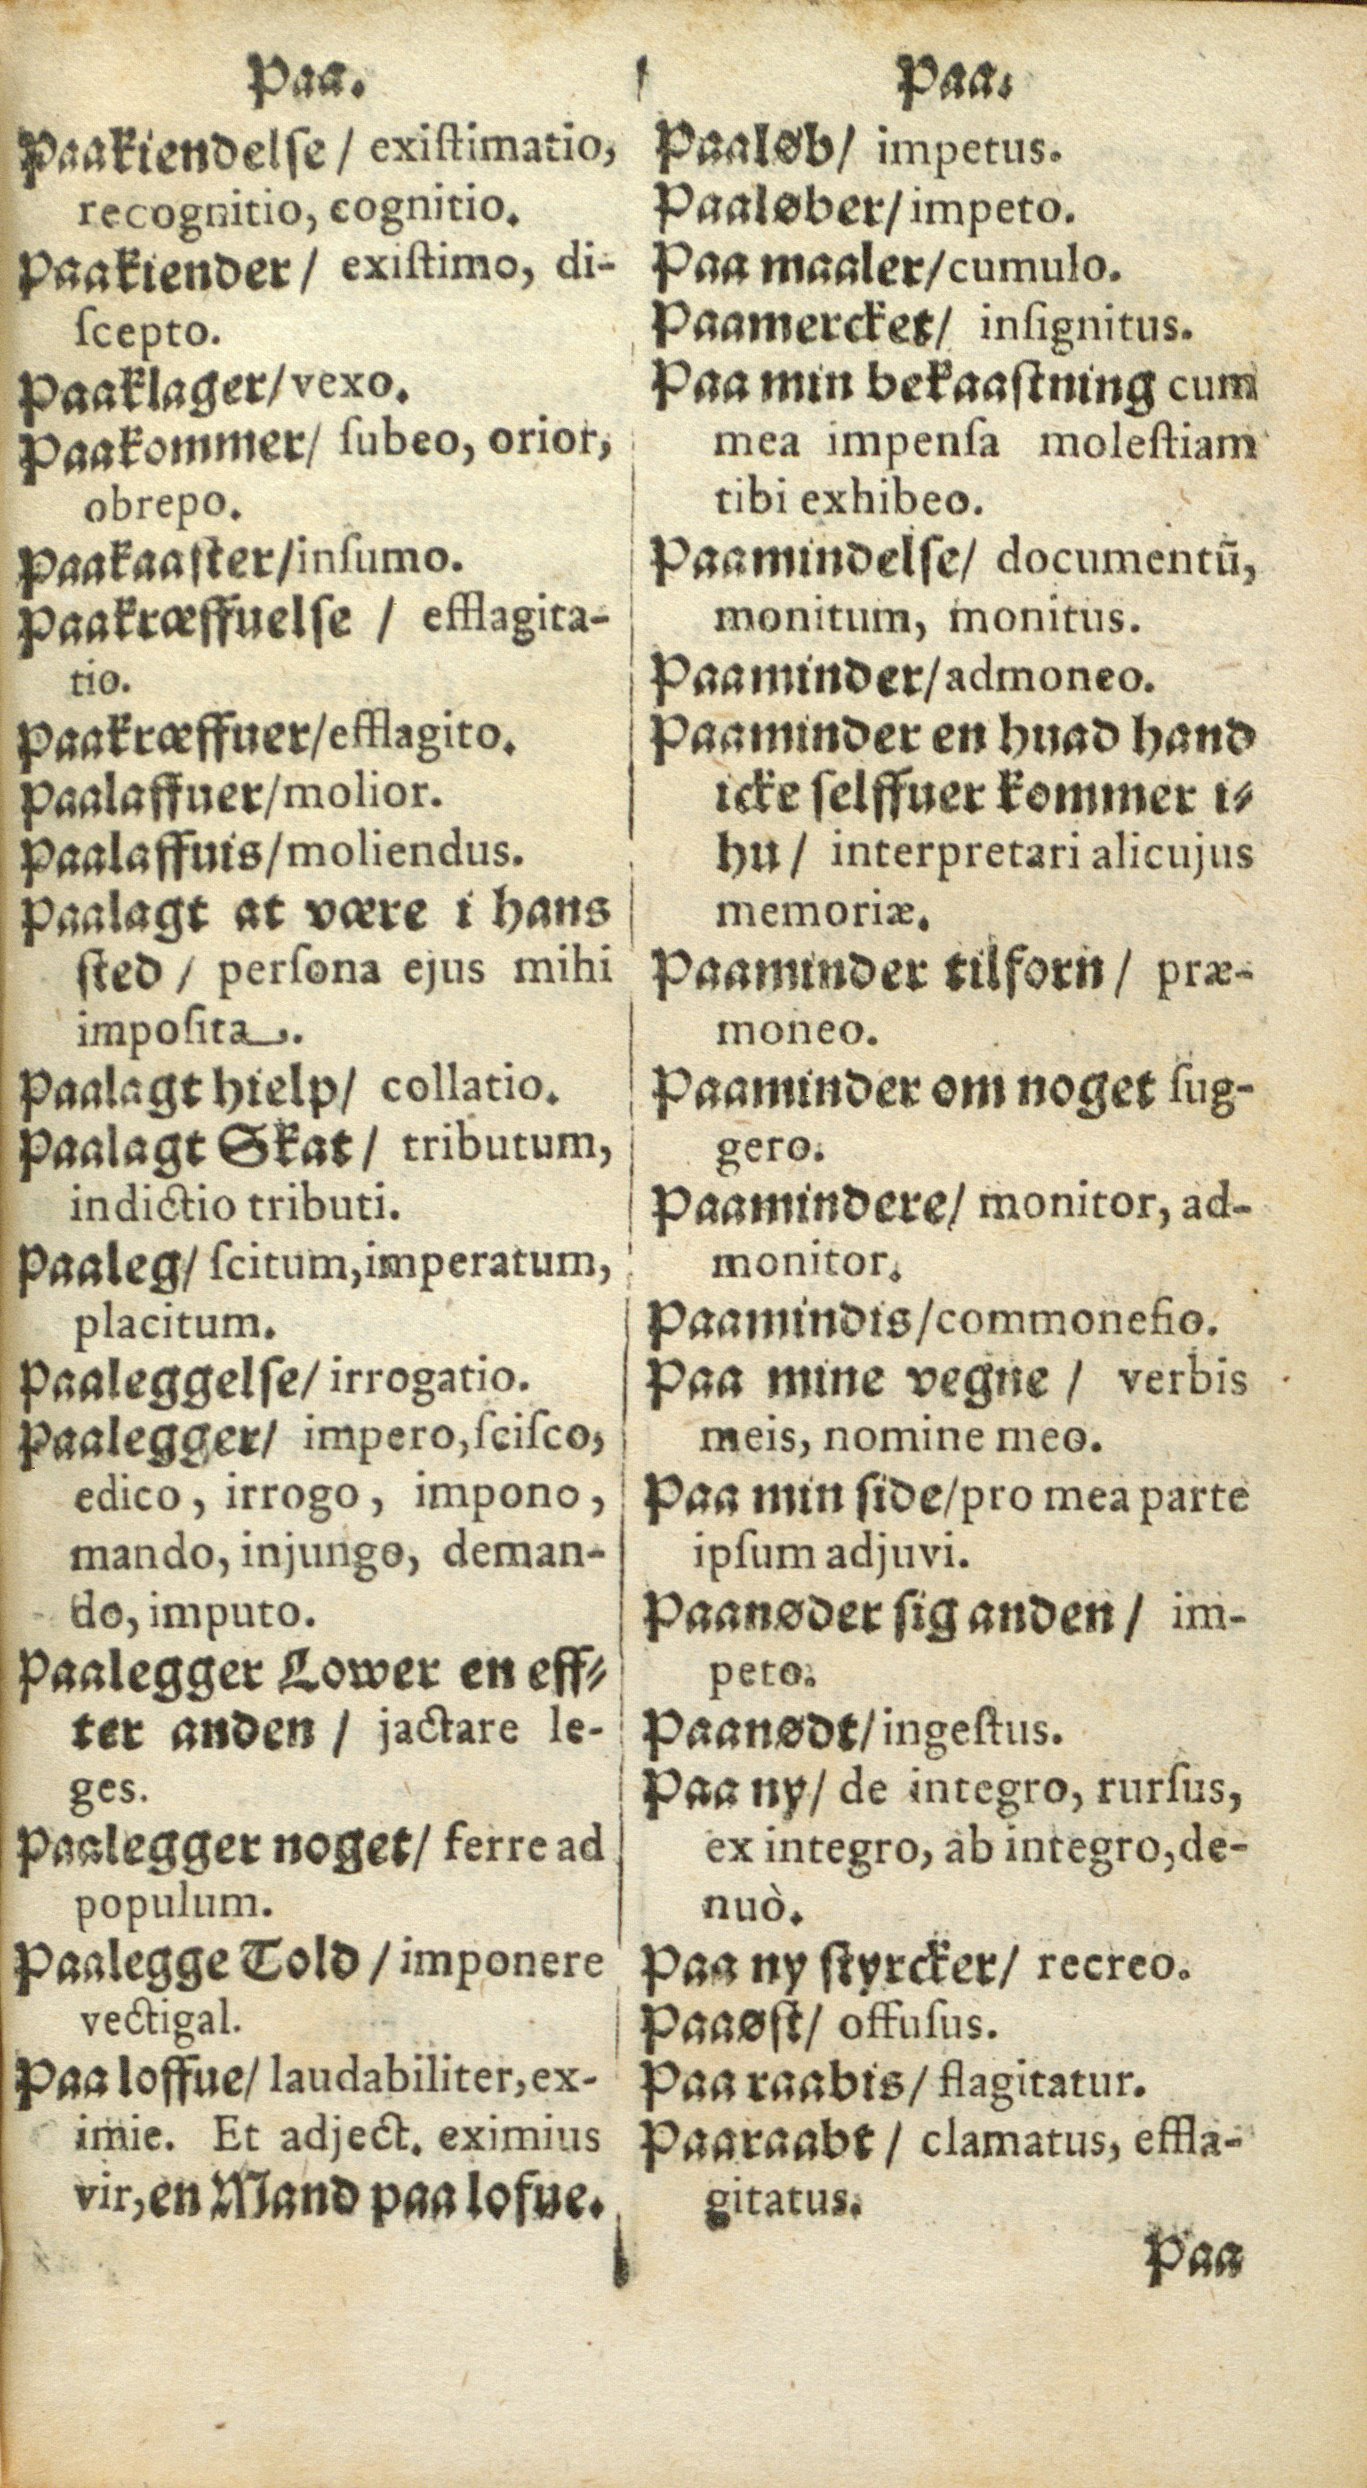 Paa.
Paakiendelſe / exiſtimatio,
recognitio, cognitio.
Paakiender / exiſtimo, di-
ſcepto.
Paaklager/vexo.
Paakommer/ ſubeo, orior,
obrepo.
Paakaaſter/inſumo.
Paakræffuelſe / efflagita-
tio.
Paakræffuer/efflagito.
Paalaffuer/molior.
Paalaffuis/moliendus.
Paalagt at være i hans
ſted / perſona ejus mihi
impoſita.
Paalagt hielp/ collatio.
Paalagt Skat/ tributum,
indictio tributi.
Paaleg/ ſcitum,imperatum,
placitum.
Paaleggelſe/ irrogatio.
Paalegger/ impero,ſciſco,
edico, irrogo, impono,
mando, injungo, deman-
do, imputo.
Paalegger Lower en eff-
ter anden / jactare le-
ges.
Paalegger noget/ ferre ad
populum.
Paalegge Told / imponere
vectigal.
Paa loffue/ laudabiliter, ex-
imie. Et adject. eximius
vir,en Mand paa lofue.
Paa.
Paaløb/ impetus.
Paaløber/impeto.
Paa maaler/cumulo.
Paamercket/ inſignitus.
Paa min bekaaſtning cum
mea impenſa moleſtiam
tibi exhibeo.
Paamindelſe/ documentũ,
monitum, monitus.
Paaminder/admoneo.
Paaminder en huad hand
icke ſelffuer kommer i-
hu / interpretari alicujus
memoriæ.
Paaminder tilforn / præ-
moneo.
Paaminder om noget ſug-
gero.
Paamindere/ monitor, ad-
monitor.
Paamindis/commonefio.
Paa mine vegne / verbis
meis, nomine meo.
Paa min ſide/pro mea parte
ipſum adjuvi.
Paanøder ſig anden / im-
peto.
Paanødt/ingeſtus.
Paa ny/ de integro, rurſus,
ex integro, ab integro,de-
nuò.
Paa ny ſtyrcker/ recreo.
Paaøſt/ offuſus.
Paa raabis/ flagitatur.
Paaraabt / clamatus, effla-
gitatus.
Paa